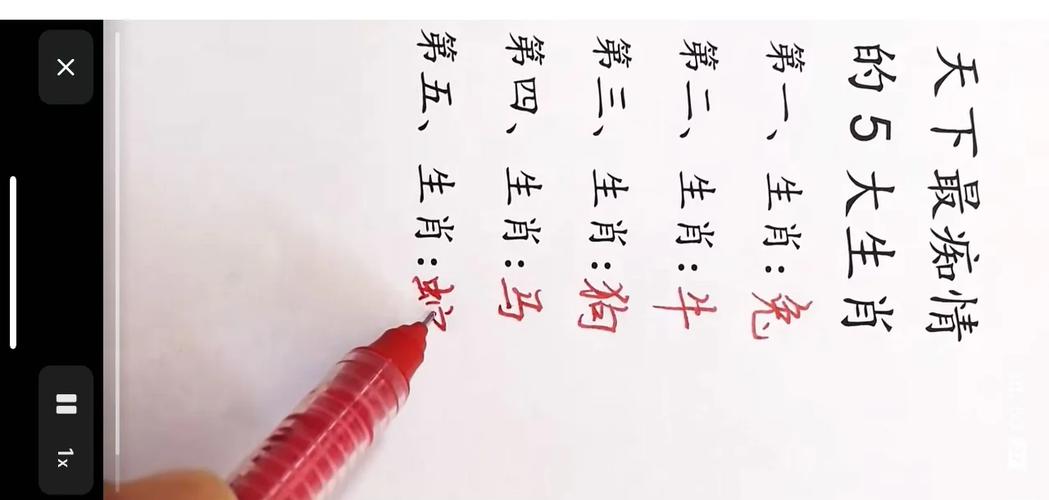 天下最痴情
的5大生肖
第一、生肖:兔
第二、生肖:牛
第三、生肖:狗
第四、生肖:马
第五、生肖:蛇
1x